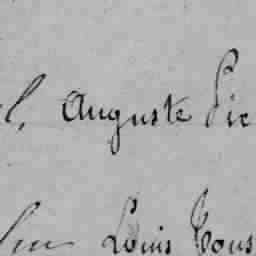 l, Auguste Pie
Louis Tous